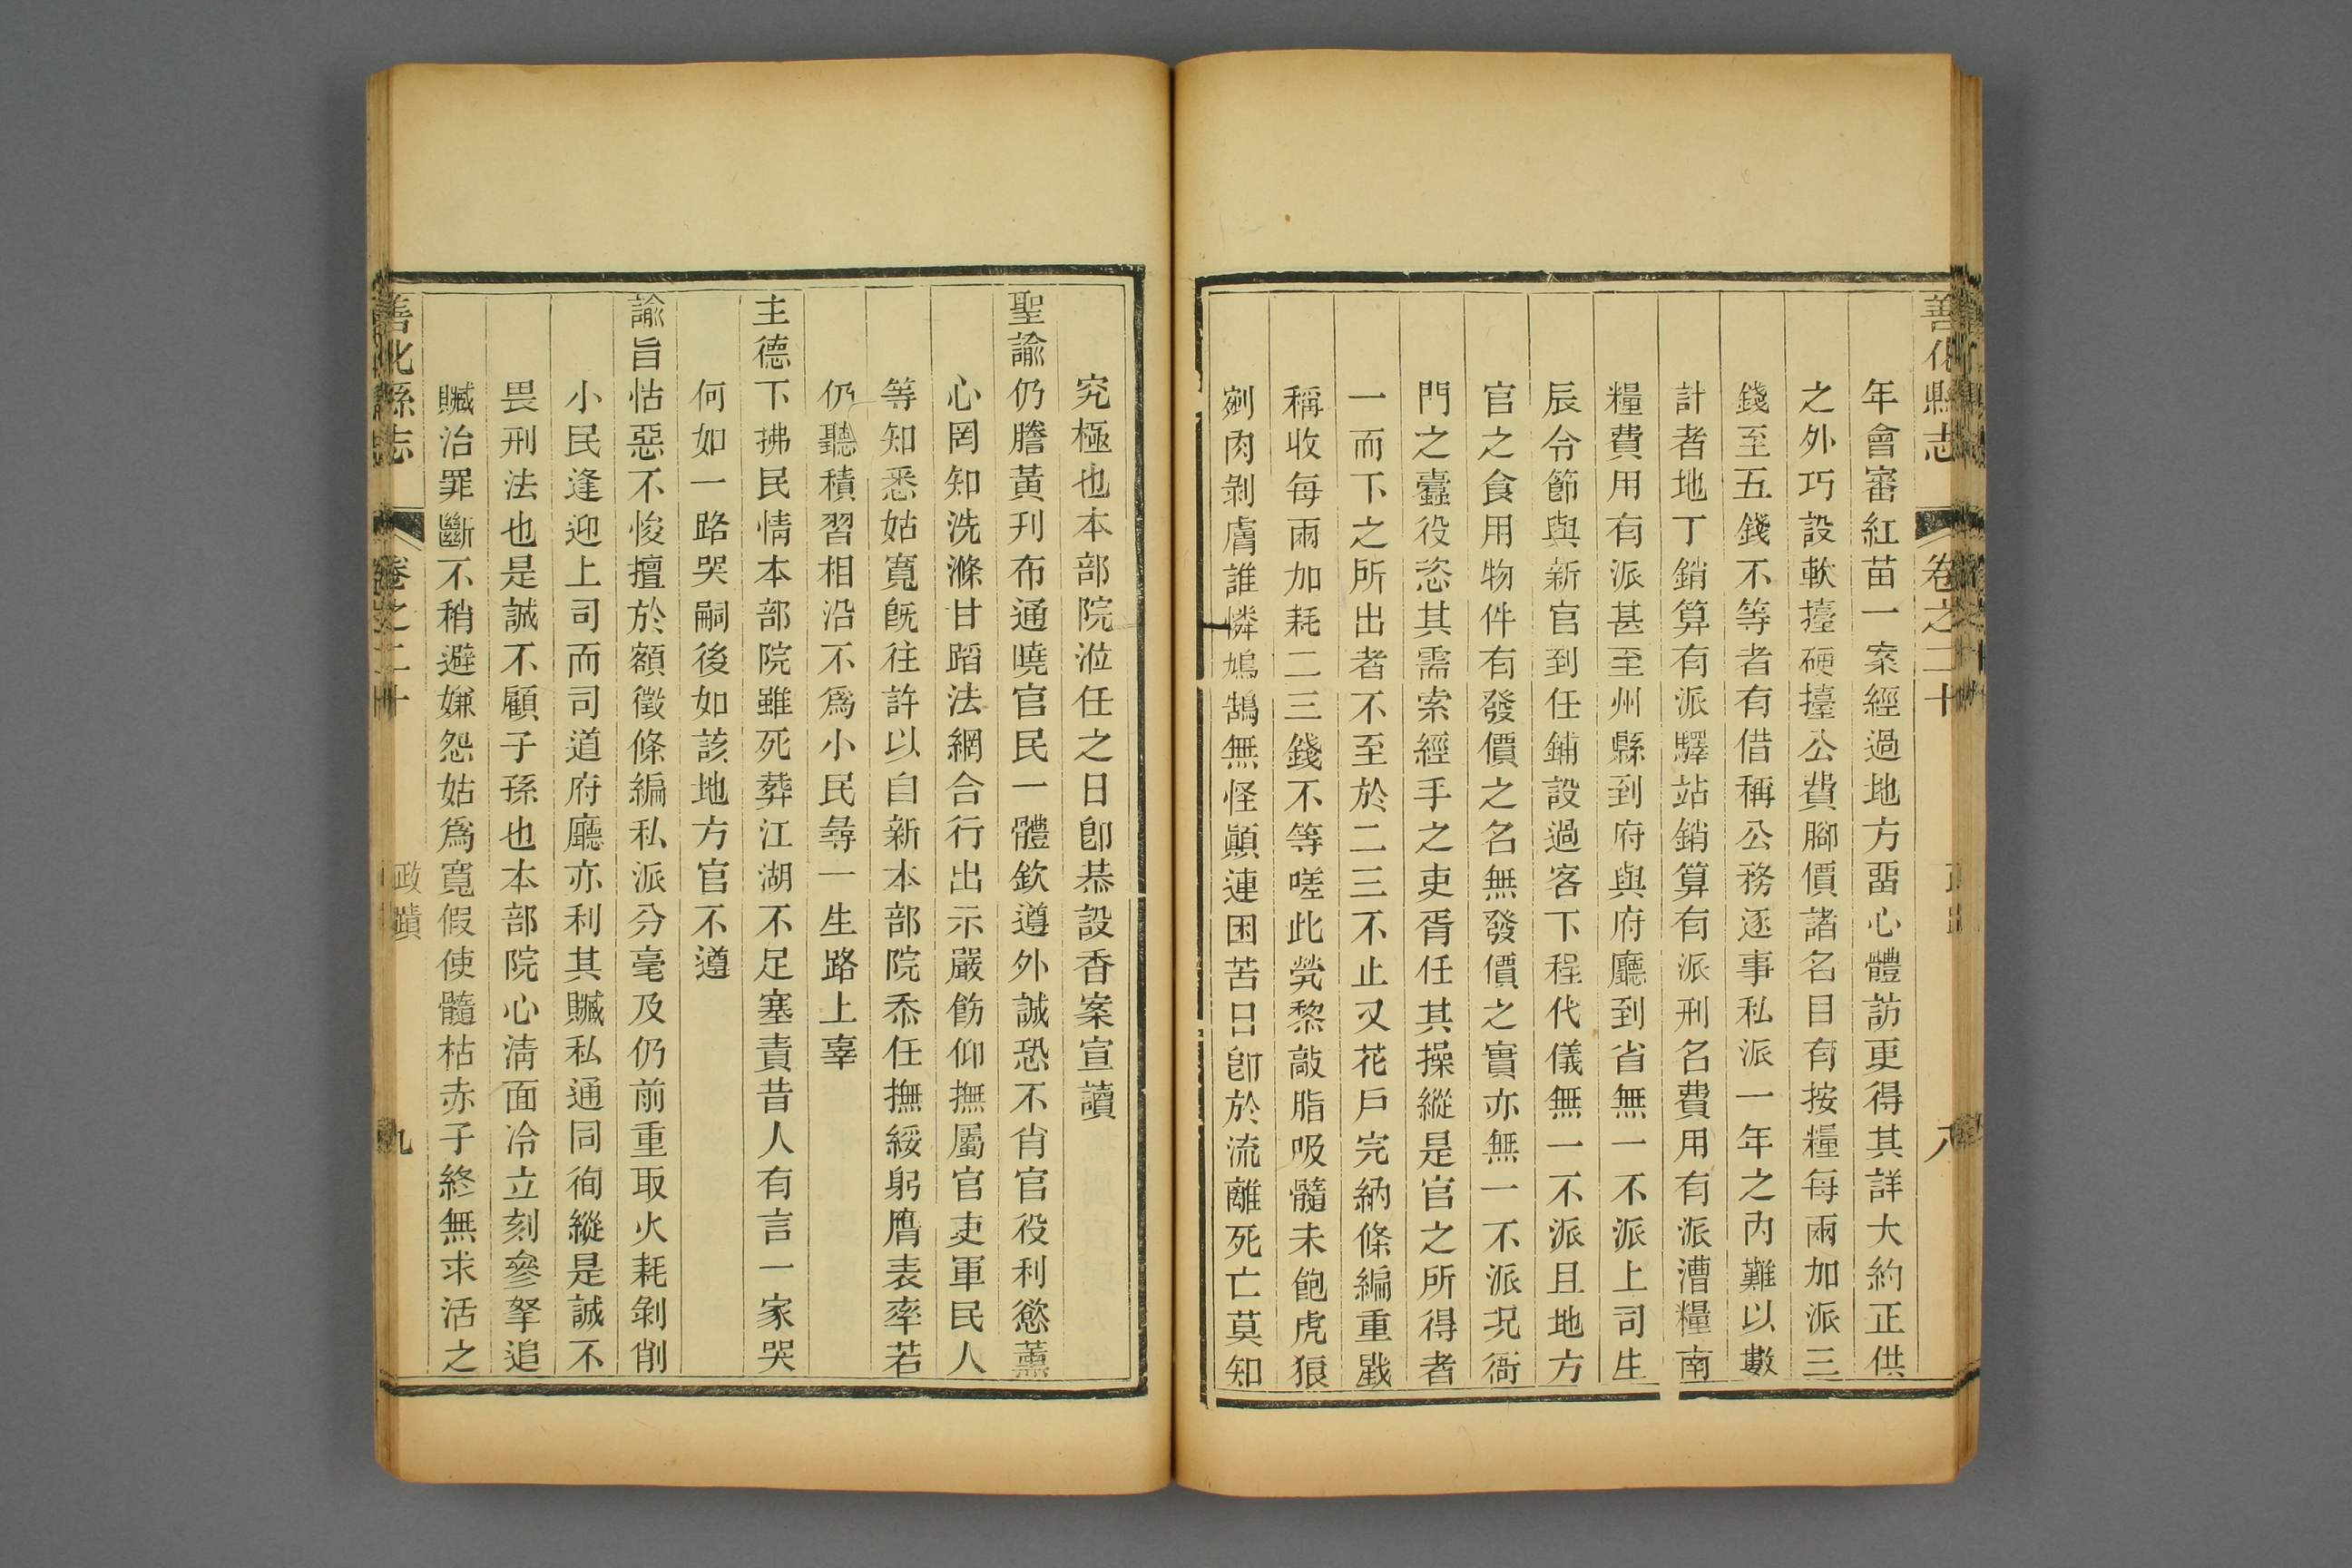 善化縣志
卷之二十
八
年會審紅苗一案經過地方畱心體訪更得其詳大約正供
之外巧設軟擡硬擡公費腳價諸名目有按糧每兩加派三
錢至五錢不等者有借稱公務逐事私派一年之內難以數
計者地丁銷算有派驛站銷算有派刑名費用有派漕糧南
糧費用有派甚至州縣到府與府廳到省無一不派上司生
辰令節與新官到任鋪設過客下程代儀無一不派且地方
官之食用物件有發價之名無發價之實亦無一不派況衙
門之蠹役恣其需索經手之吏胥任其操縱是官之所得者
一而下之所出者不至於二三不止又花戶完納條編重戥
稱收每兩加耗二三錢不等嗟此煢黎敲脂吸髓未飽虎狼
剜肉剝膚誰憐鳩鵠無怪顛連困苦日卽於流離死亡莫知
究極也本部院涖任之日卽恭設香案宣讀
聖諭仍謄黃刊布通曉官民一體欽遵外誠恐不肖官役利慾薰
心罔知洗滌甘蹈法網合行出示嚴飭仰撫屬官吏軍民人
等知悉姑寬旣往許以自新本部院忝任撫綏躬膺表率若
仍聽積習相沿不爲小民尋一生路上辜
主德下拂民情本部院雖死葬江湖不足塞責昔人有言一家哭
何如一路哭嗣後如該地方官不遵
諭旨怙惡不悛擅於額徵條編私派分毫及仍前重取火耗剝削
小民逢迎上司而司道府廳亦利其贓私通同徇縱是誠不
畏刑法也是誠不顧子孫也本部院心淸面冷立刻參拏追
贓治罪斷不稍避嫌怨姑爲寬假使髓枯赤子終無求活之
善化縣志
卷之二十
政蹟
九